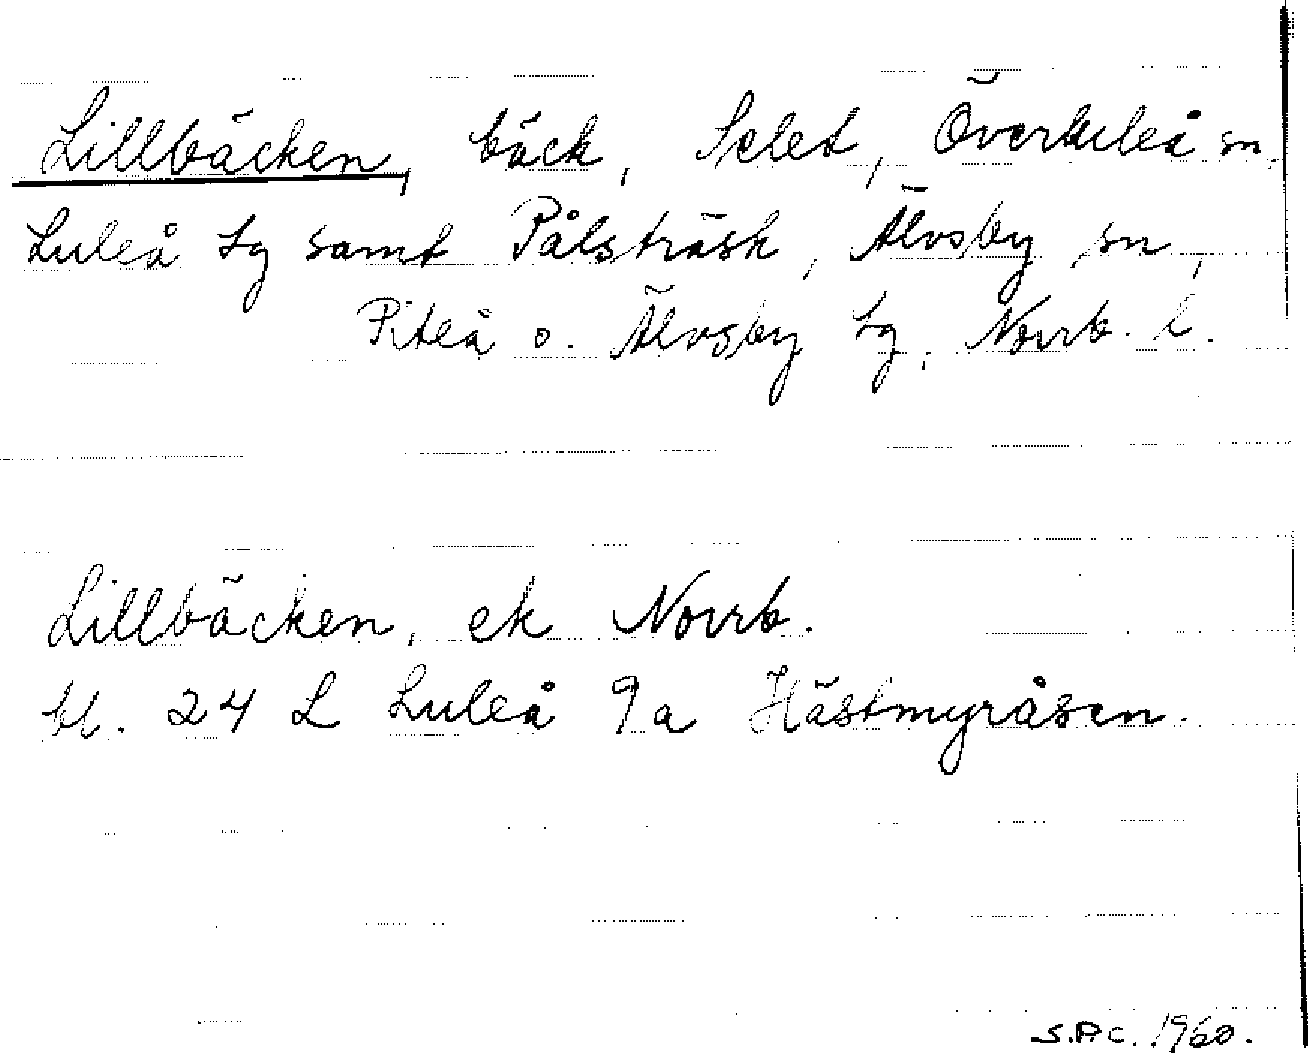 Lillbäcken, bäck, Selet, Överluleå sn,
Luleå tg samt Pålsträsk, Älvsby sn,
Piteå o. Älvsby tg, Norrb. l.
Lillbäcken, ek Norrb.
bl. 24 L Luleå 9a Hästmyråsen.
S.P.C. 1960.